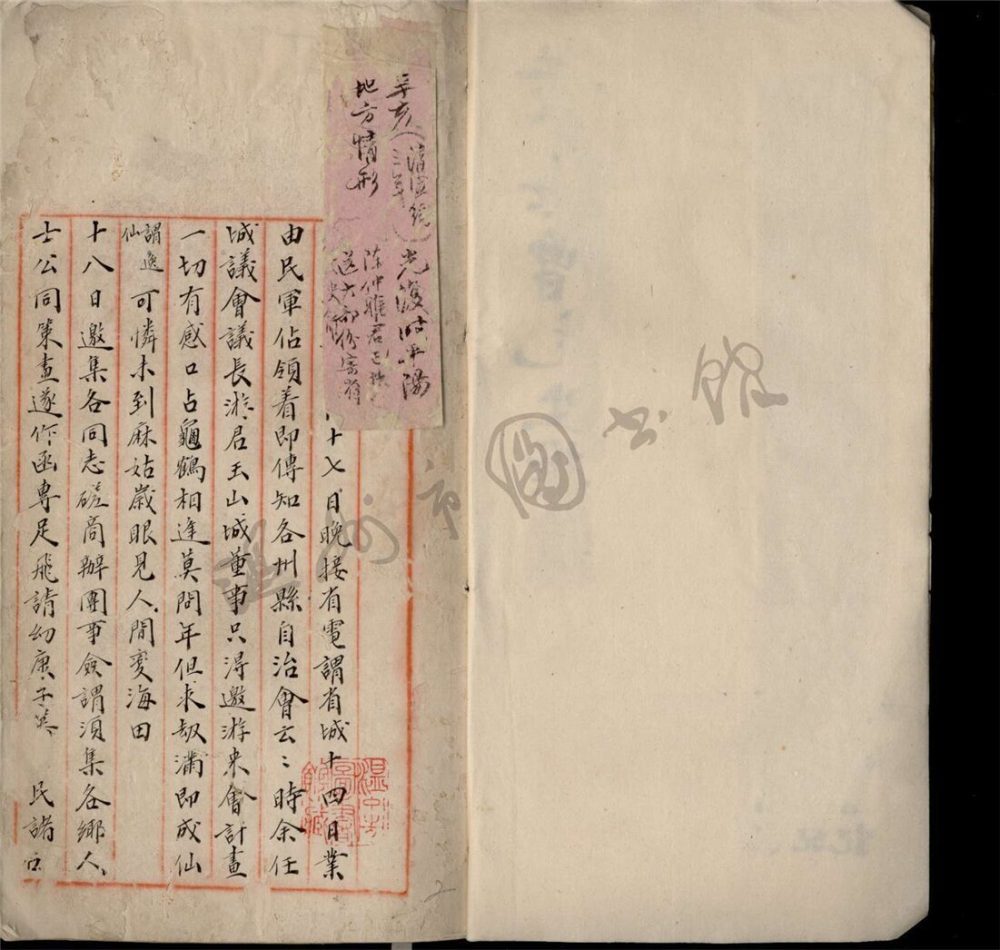 辛亥(清宣統三年)光復時平陽
地方情形
陈仲雅君
送大部份
十七日晚接省電謂省城十四日業
由民軍佔領着即傳知各州縣自治會云云時余任
城議會議長游君玉山城董事只得邀游來會計畫
一切有感口占龜鶴相逢莫問年但求劫滿即成仙
謂逸仙可憐未到麻姑歲眼見人間變海田
十八日邀集各同志磋商辦團事僉謂須集各鄉人
士公同策畫遂作函專足飛請幼康子 民諸
温州市圖書館藏
温州市图书馆
2